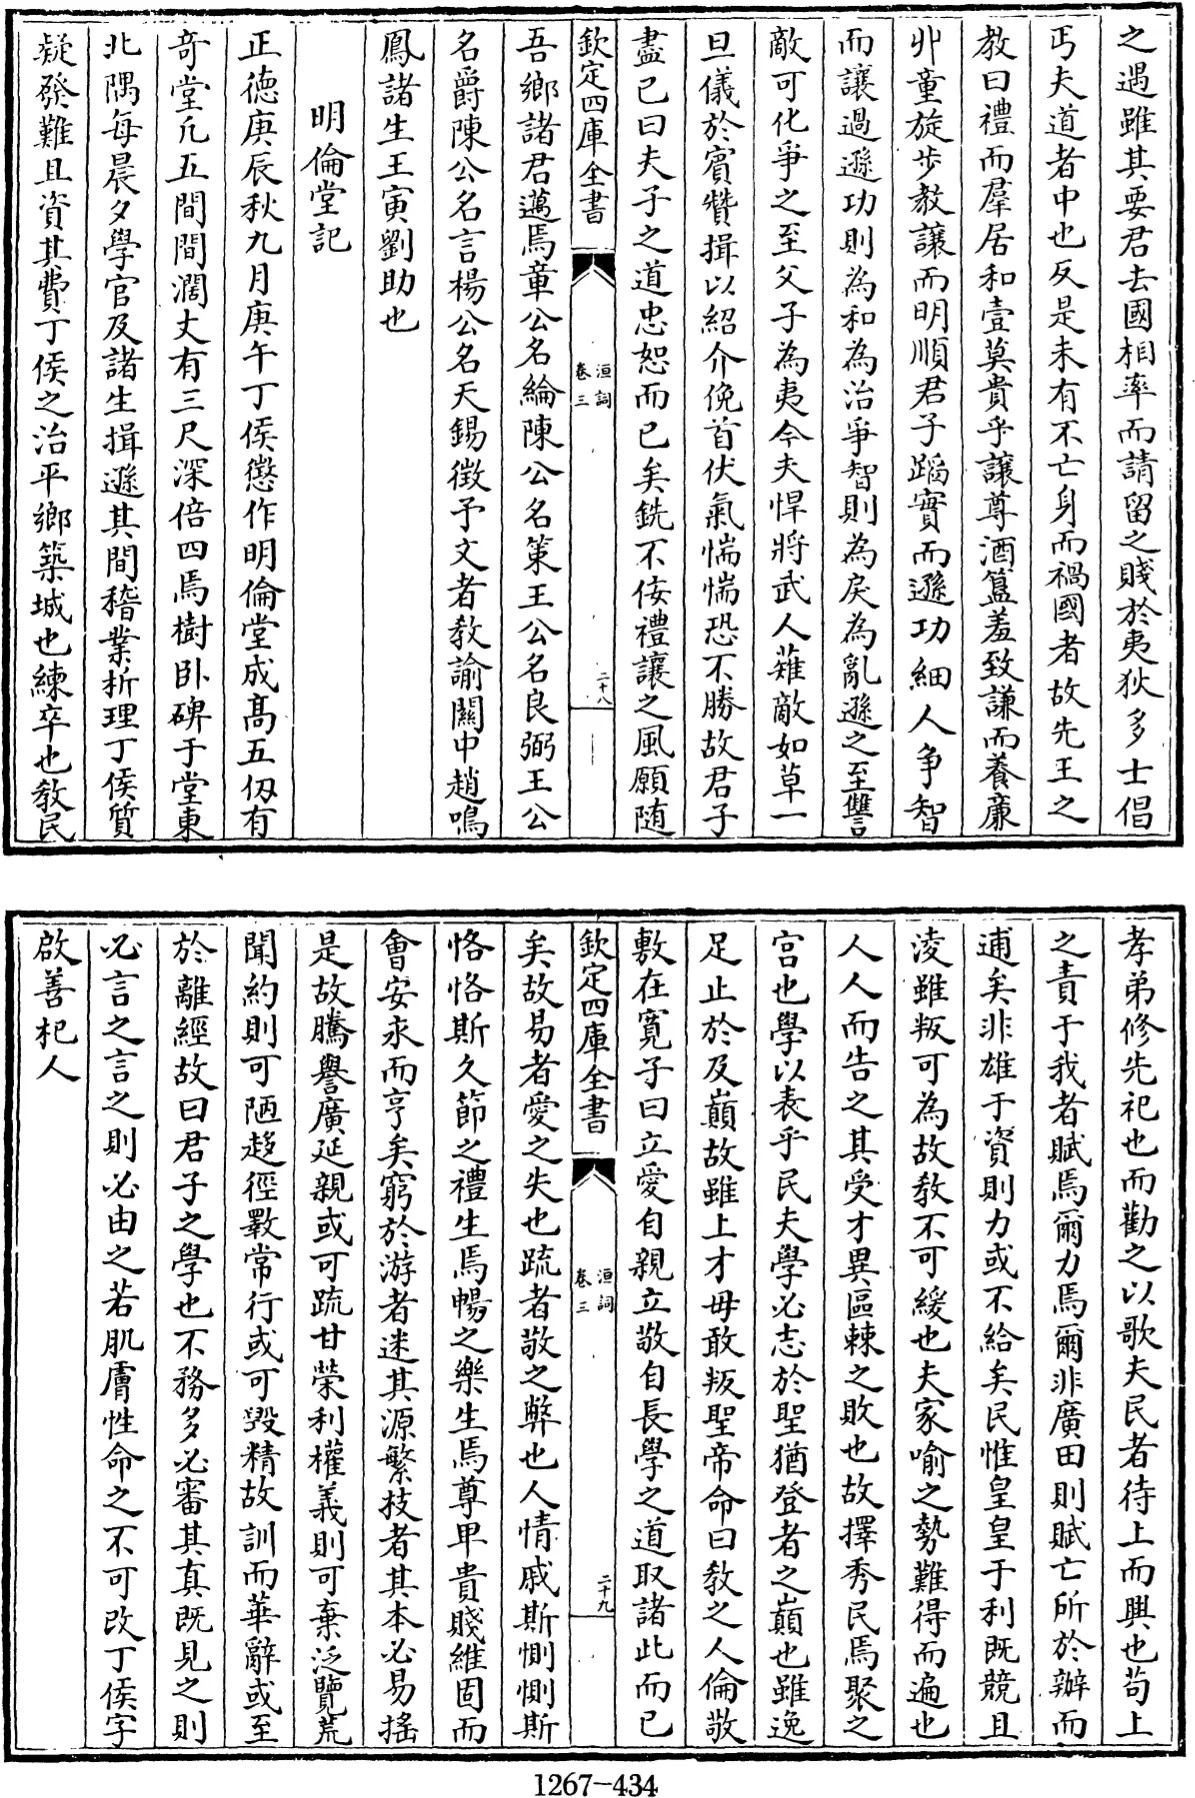 之遇雖其要君去國相率而請留之賤於夷狄多士倡
丐夫道者中也反是未有不亡身而禍國者故先王之
教曰禮而羣居和壹莫貴乎讓尊酒簋羞致謙而養廉
丱童旋步教讓而明順君子蹈實而遜功細人争智
而讓過遜功則為和為治爭智則為戾為亂遜之至讐
敵可化爭之至父子為夷今夫悍將武人薙敵如草一
旦儀於賓贊揖以紹介俛首伏氣惴惴恐不勝故君子
盡已曰夫子之道忠恕而已矣銑不佞禮讓之風願随
欽定四庫全書
洹詞
卷三
二十八
吾鄉諸君邁焉章公名綸陳公名策王公名良弼王公
名爵陳公名言楊公名天錫徴予文者教諭關中趙鳴
鳳諸生王寅劉助也
明倫堂記
正德庚辰秋九月庚午丁侯懲作明倫堂成高五仭有
奇堂凡五間間濶丈有三尺深倍四焉樹卧碑于堂東
北隅每晨夕學官及諸生揖遜其間稽業析理丁侯質
疑發難且資其費丁侯之治平鄉築城也練卒也教民
孝弟修先祀也而勸之以歌夫民者待上而興也苟上
之責于我者賦焉爾力焉爾非廣田則賦亡所於辦而
逋矣非雄于資則力或不給矣民惟皇皇于利既競且
淩雖叛可為故教不可緩也夫家喻之勢難得而遍也
人人而告之其受才異區棘之敗也故擇秀民焉聚之
宮也學以表乎民夫學必志於聖猶登者之巔也雖逸
足止於及巔故雖上才毋敢叛聖帝命曰教之人倫敬
敷在寛子曰立愛自親立敬自長學之道取諸此而已
欽定四庫全書
洹詞
卷三
二十九
矣故易者愛之失也疏者敬之弊也人情戚斯惻惻斯
恪恪斯久節之禮生焉暢之樂生焉尊卑貴賤維固而
會安永而亨矣窮於游者迷其源繁技者其本必易搖
是故騰譽廣延親或可疏甘榮利權義則可棄泛覽荒
聞約則可陋趍徑斁常行或可毀精故訓而華辭或至
於離經故曰君子之學也不務多必審其真既見之則
必言之言之則必由之若肌膚性命之不可改丁侯字
啟善杞人
1267-434